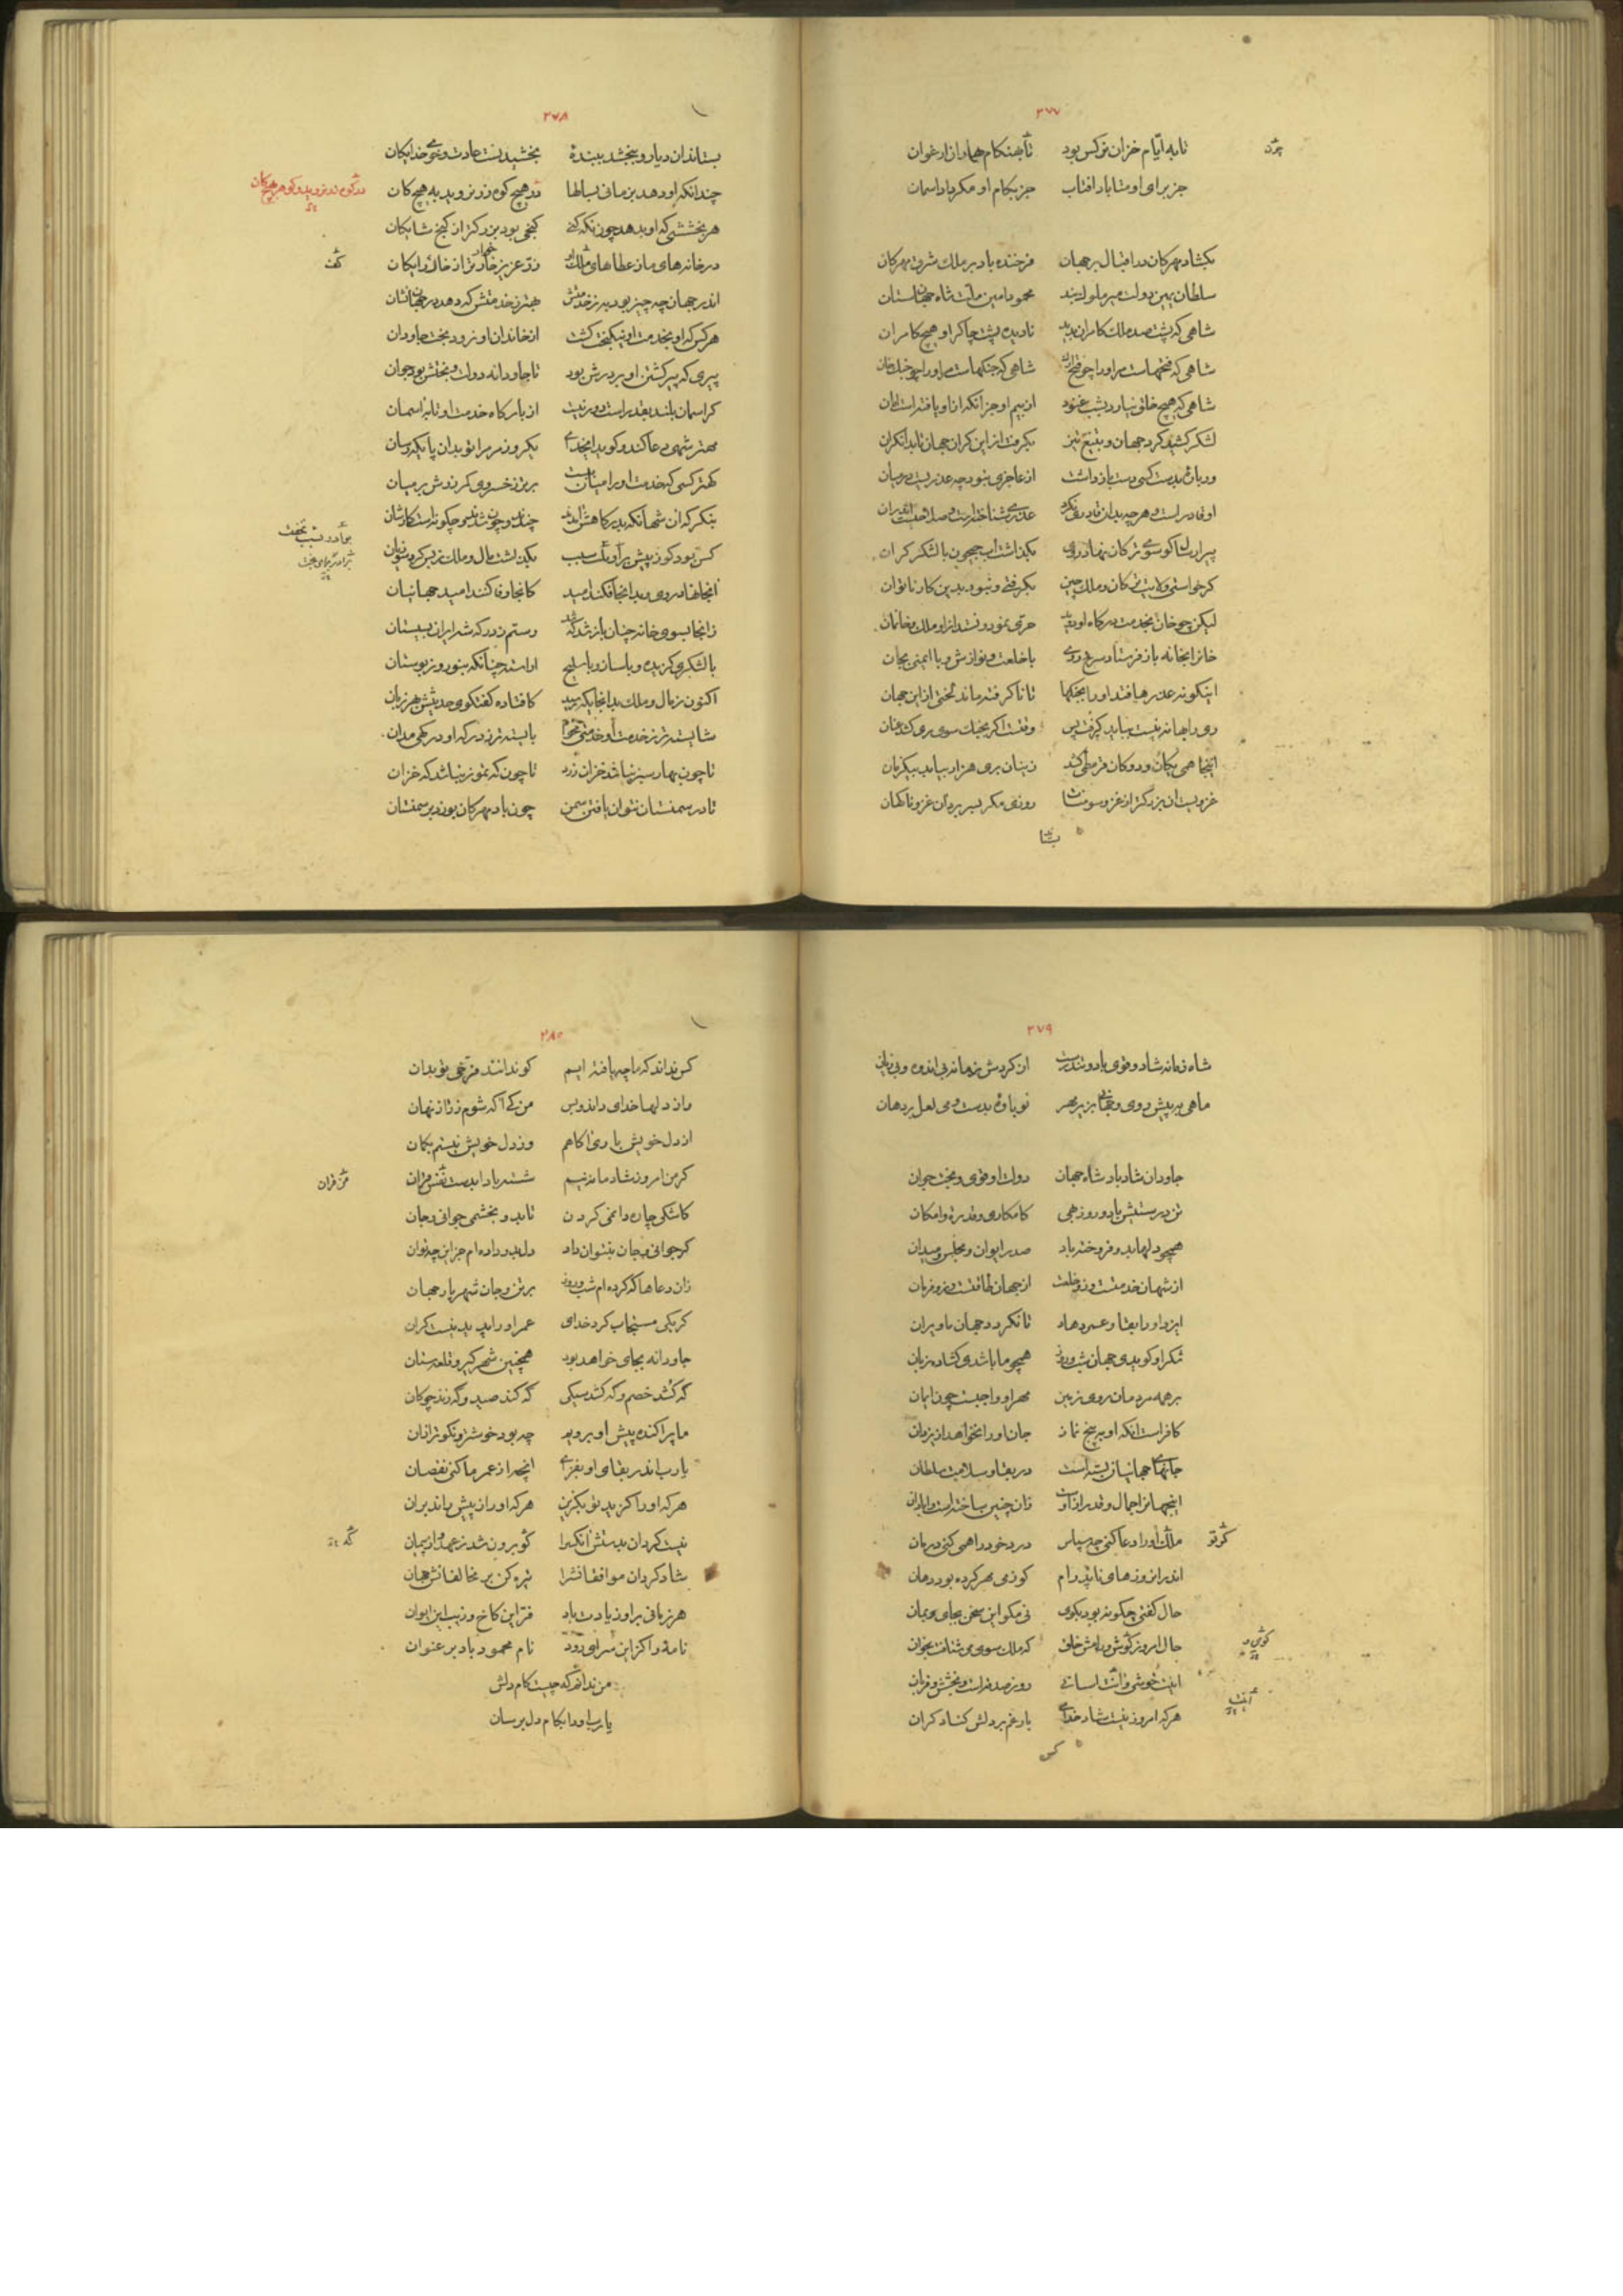 ۲۷۷
تا به ایام خزان نرکس بود تا بهنکام بهار از ارغوان
چون
جز برای او متاباد افتاب جز بکام او مکرداد اسمان
بکشاد مهرکان در اقبال بر جهان فرخنده باد بر ملک شرق مهرکان
سلطان یمین دولت میر ملوک بند محمود امین ملت شاه جهان ستان
شاهی که پشت صد ملک کامران بدید نادیده پشت چاکر او هیچ کامران
شاهی که فتحهاست مر او را چو فتح شاهی که جنکهاست مر او را چو جنک خان
شاهی که هیچ خلق نیارد بشب غنود از بیم او جز آنکه از او یافت است امان
لشکر کشید کرد جهان و بتیغ تیز بکرفت از این کران جهان تا بدان کران
ور باز ماند دست کسی دست باز داشت از عاجزی نبود چه عذریست در میان
کر خواستی ولایت ترکان و ملک چین بکرفتی و نبود بدین کار ناتوان
لیکن چو خان بخدمت درکاه او حری نمود و نستد از او ملک و خانمان
خانرا بخانه باز فرستاد سرخ روی با خلعت و نوازش و با ایمنی بجان
اینکونه عذرها فتد او را بجنکها تا ناکرفته ماند لختی از این جهان
ری را بهانه نیست بباید کرفت پس وقتست اکر بجنک سوی ری کشد عنان
اینجا همی یکان و دوکان قرمطی کشد زینان بری هزار بیابد بیکزمان
غزویست ان بزرکتر از غزو سومنات روزی مکر بسر برد آن غزو ناکهان
بستا
۲۷۸
بستاند ان دیار و ببخشد ببنده بخشیدنست عادت و خوی خدایکان
چندانکه او دهد بزمانی بسالها در هیچ کوه زر نروید به هیچ کان
در کوه زر نروید و کوهر بهیچ کان
هر بخششی که او بدهد چون نکه کنی کنجی بود بزرکتر از کنج شایکان
در خانه های ما ز عطاهای ملک زر عزیز خوارتر از خاک رایکان
اندر جهان چه چیز بود به ز خدمتش بهتر ز خدمتش که دهد در جهان نشان
هرکس که او بخدمت او نیکبخت کشت از خاندان او نرود بخت جاودان
پیری که پیر کشتن او بر درش بود تا جاودانه دولت و بختش بود جوان
کر اسمان بلند بقدر است دور نیست از بارکاه خدمت او تا به اسمان
مهتر شهی دعا کند و کوید ایخدای یکروز مر مرا تو بدان پایکه رسان
کهتر کسی که خدمت او را میان ببست برتر ز خسروی کمر زر بر میان
کس بود کوز پیش برآورد بی سبب بکذشت مال و ملک
زانجا بسوی خانه چنان باز شد که رستم ز درکه شه ایران بسیستان
با لشکری کزیده و با ساز و با سلیح اراسته چنانکه بنوروز بوستان
اکنون ز مال و ملک بدانجایکه رسید کافتاده کفتکوی حدیثش بهر زبان
شایسته تر ز خدمت او خدمتی مخواه بایسته تر ز درکه او درکهی مدان
تا چون بهار سبز نباشد خزان زرد تا چون که تموز نباشد که خزان
تا در سمنستان نتوان یافتن سمن چون باد مهرکان بوزد بر سمنستان
۲۷۹
شاه زمانه شاد و قوی باد و تندرست از کردش زمانه بی اندوه و بی زیان
ماهی به پیش روی و جهانی بزیر مهر نو باوه بدست و می لعل بر دهان
جاودان شاد باد شاه جهان دولت او قوی و بخت جوان
تن درستیش باد و روز بهی کامکاری و قدرت و امکان
همچو دلها بدو فروخته باد صدر ایوان و مجلس و میدان
از شهان خدمتست و زو خلعت از جهان طاعتست و زو فرمان
ایزد او را بقا و عمر دهاد تا نکردد جهان ما ویران
شکر او کویدی جهان شب و روز همچو ما باشدی کشاده زبان
بر همه مردمان روی زمین مهر او واجبست چون ایمان
کافر است انکه او به پنج نماز جان او را نخواهد از یزدان
جانهای جهانیان بسته است در بقا و سلامت سلطان
اینجهانرا جمال و قدر از اوست زان چنین ساخته است و ابادان
ملک او را دعا کنی چه سپاس درد خود را همی کنی درمان
کرتو
اندر ان روزهای نا پدرام کو ز می بهر کرده بود دهان
حال کفتی چکونه بود بکوی نی مکو این سخن بجای بمان
حال امروز کوی و رامش خلق که ملک سوی می شتافت بخوان
اینت خوشی و اینت اسانی روز صدقه است و بخشش و قربان
هرکه امروز نیست شاد خدای بار غم بر دلش کناد کران
کس
۲۸۰
کس نداند که ما چه یافته ایم کو نداند فزخی تو بدان
راز دلها خدای داند و بس من کی آکه شوم ز راز نهان
از دل خویش باری اکاهم وز دل خویش نیستم بکمان
کر من امروز شاد مانه نیم شسته بادا بدست نفس قران
من قران
کاشکی چاره دانمی کردن تا بدو بخشمی جوانی و جان
کر جوانی و جان بنتوان داد دل بدو داده ام جز این چتوان
زان دعاها که کرده ام شب و روز بر تن و جان شهریار جهان
کر یکی مستجاب کرد خدای عمر او را پدید نیست کران
جاودانه بجای خواهد بود همچنین شهر کیر و قلعه ستان
که کشد خصم و که کشد سیکی که کند صید و که زند چوکان
ما پراکنده پیش او برویم چه بود خوشتر و نکوتر از ان
یا رب اندر بقای او بفزای انچه از عمر ما کنی نقصان
هرکه او را کزید تو بکزین هرکه او را ز پیش راند بران
نیست کردان بدستش انکس را کو برون شد ز عهد و از پیمان
شاد کردان موافقانش را تیره کن بر مخالفانش جهان
هر زمانی بر او زیادت باد فر این کاخ و زیب این ایوان
نامه دا کز این سرای رود نام محمود باد بر عنوان
من ندانم که چیست کام دلش
یا رب او را بکام دل برسان